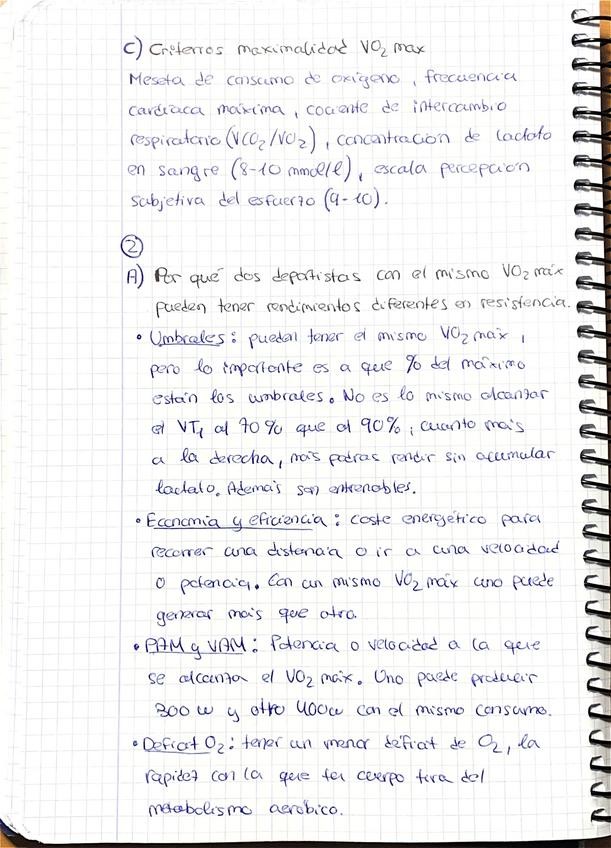 C) Criterios maximalidad VO2 max
Meseta de consumo de oxígeno, frecuencia
cardíaca máxima, cociente de intercambio
respiratorio (VCO2/VO2), concentración de lactato
en sangre (8-10 mmol/l), escala percepción
subjetiva del esfuerzo (9-10).
②
A) Por qué dos deportistas con el mismo VO2 máx
pueden tener rendimientos diferentes en resistencia.
• Umbrales: pueden tener el mismo VO2 máx,
pero lo importante es a que % del máximo
están los umbrales. No es lo mismo alcanzar
el VT1 al 70% que al 90%, cuanto más
a la derecha, más podrás rendir sin acumular
lactato. Además son entrenables.
• Economía y eficiencia: coste energético para
recorrer una distancia o ir a una velocidad
o potencia. Con un mismo VO2 máx uno puede
generar más que otro.
• PAM y VAM: Potencia o velocidad a la que
se alcanza el VO2 máx. Uno puede producir
300 w y otro 400w con el mismo consumo.
• Deficit O2: tener un menor déficit de O2, la
rapidez con la que tu cuerpo tira del
metabolismo aeróbico.